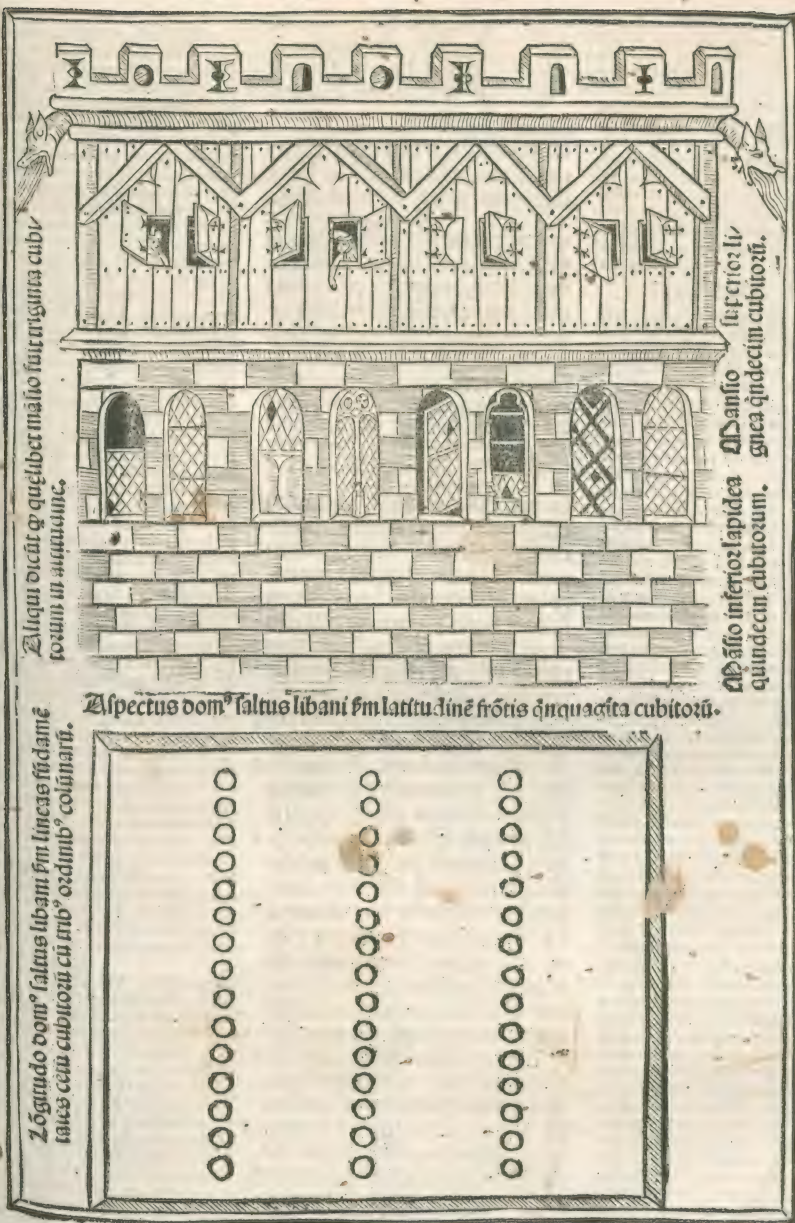 Aliqui dicūt ꝙ quęlibet māsio fuit triginta cubi⸗
torum in altitudine.
Mansio superior li⸗
gnea q̄ndecim cubitorū.
Māsio inferior lapidea
quindecim cubitorum.
Aspectus domꝰ saltus libani ẜm latitudinē frōtis q̄nquagīta cubitorū.
Lōgitudo domꝰ saltus libani ẜm lineas fūdamē
tales cētū cubitorū cū tribꝰ ordinibꝰ colūnarū.